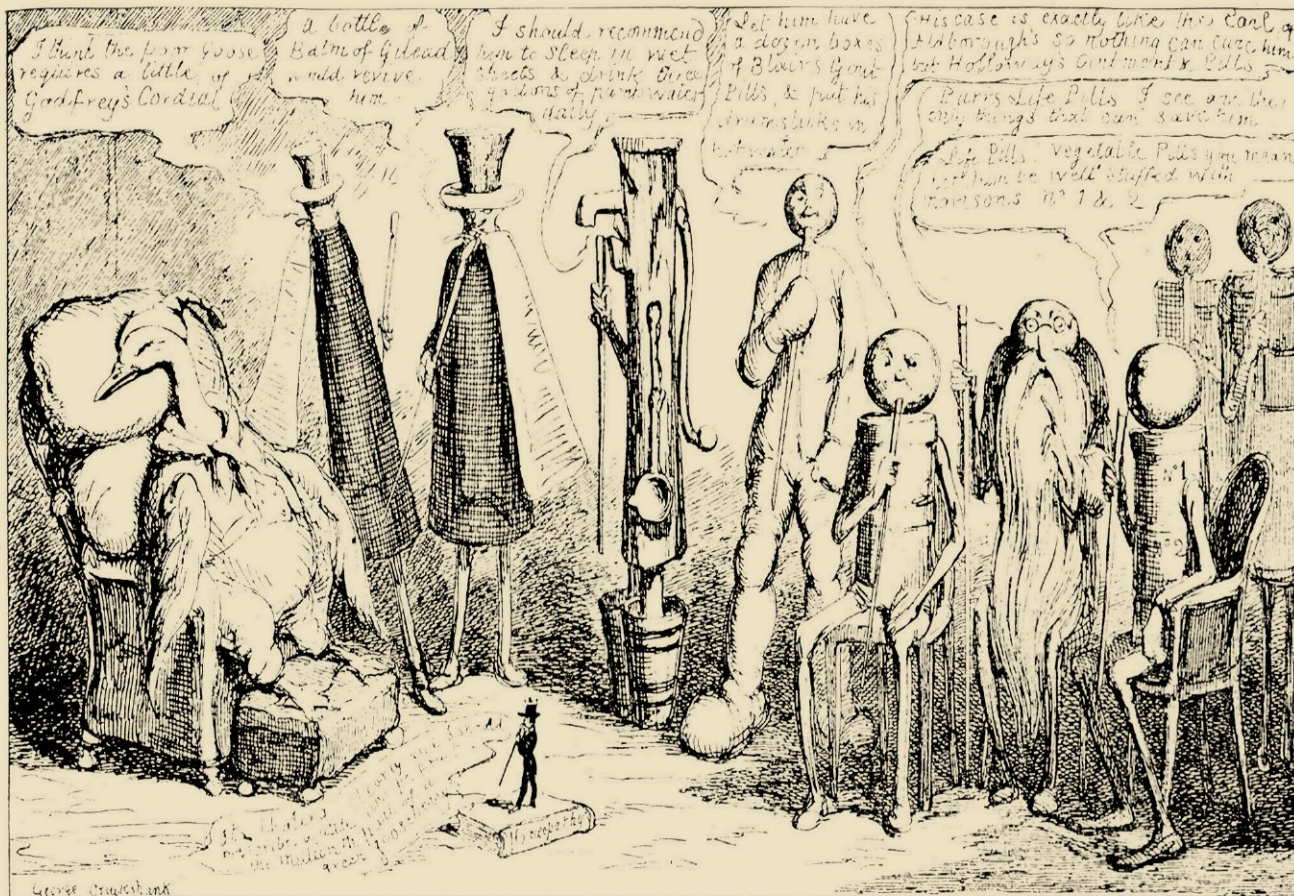 I think the poor Goose
requires a little of
Godfrey's Cordial
a bottle of
Balm of Gilead
would revive
him
I should recommend
him to Sleep in wet
Sheets & drink three
gallons of pump water
daily
Let him have
a dozen boxes
of Blairs Gout
Pills & put his
drumsticks in
hot water
His case is exactly like the Earl of
Aldborough's so nothing can cure him
but Holloway's Ointment & Pills
Parrs Life Pills I see are the
only things that can save him
Life Pills! Vegetable Pills you mean
let him be well stuffed with
Morisons No 1 & 2
the only cure for
the million
green
Homeopathy
George Cruikshank